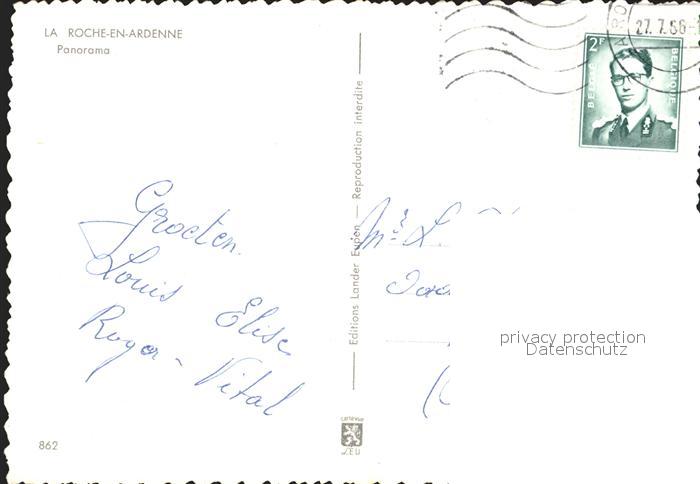 LA ROCHE-EN-ARDENNE
Panorama
27.7.66-1
2F
BELGIË BELGIQUE
Groeten.
Louis Elise
Roger - Vital
Editions Lander Eupen — Reproduction interdite
Mr. L
privacy protection
Datenschutz
862
LEU